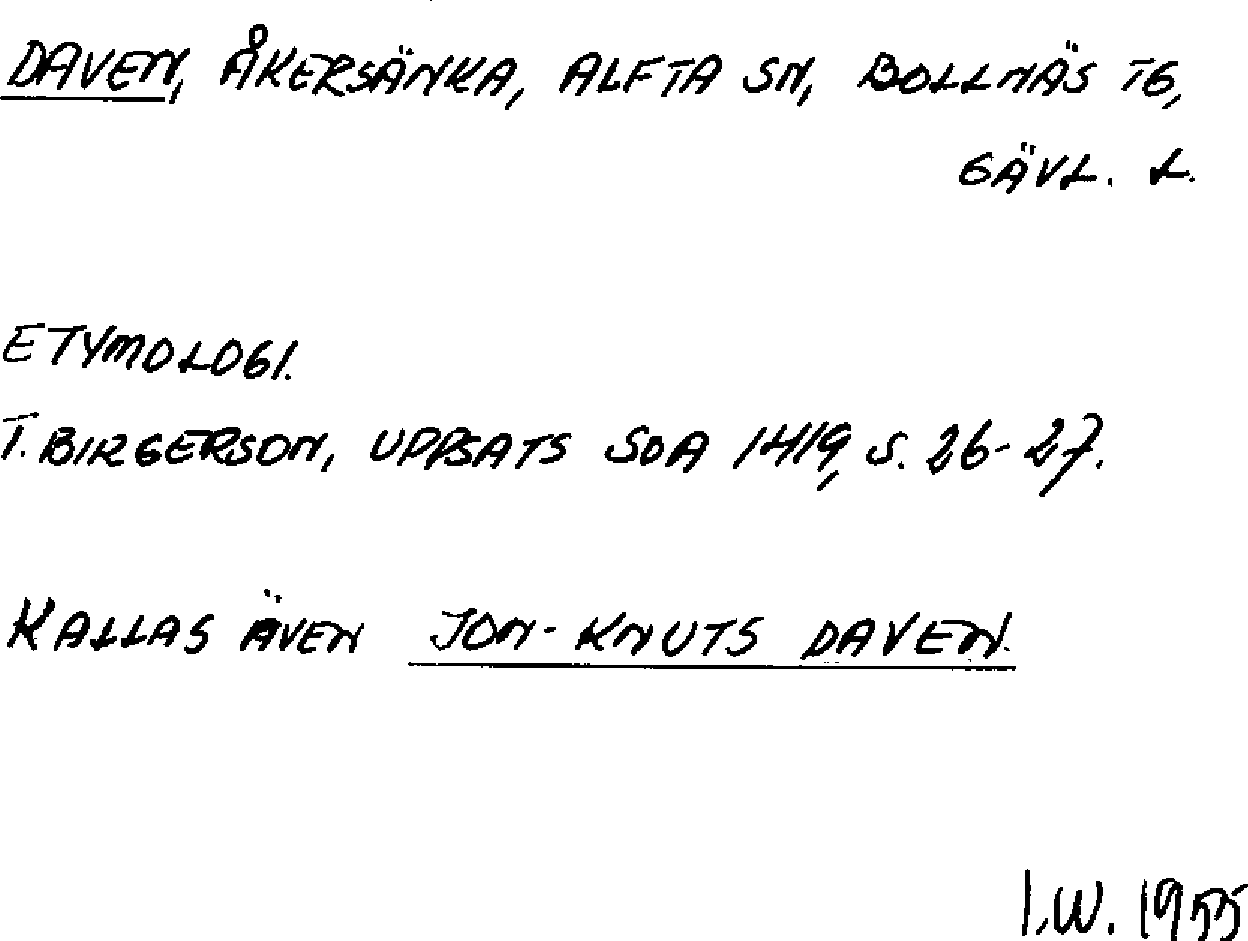 DAVEN, ÅKERSÄNKA, ALFTA SN, BOLLNÄS TG,
GÄVL. L.
ETYMOLOGI.
T. BIRGERSON, UPPSATS SOA 1419, S. 26-27.
KALLAS ÄVEN JON-KNUTS DAVEN.
I.W. 1955